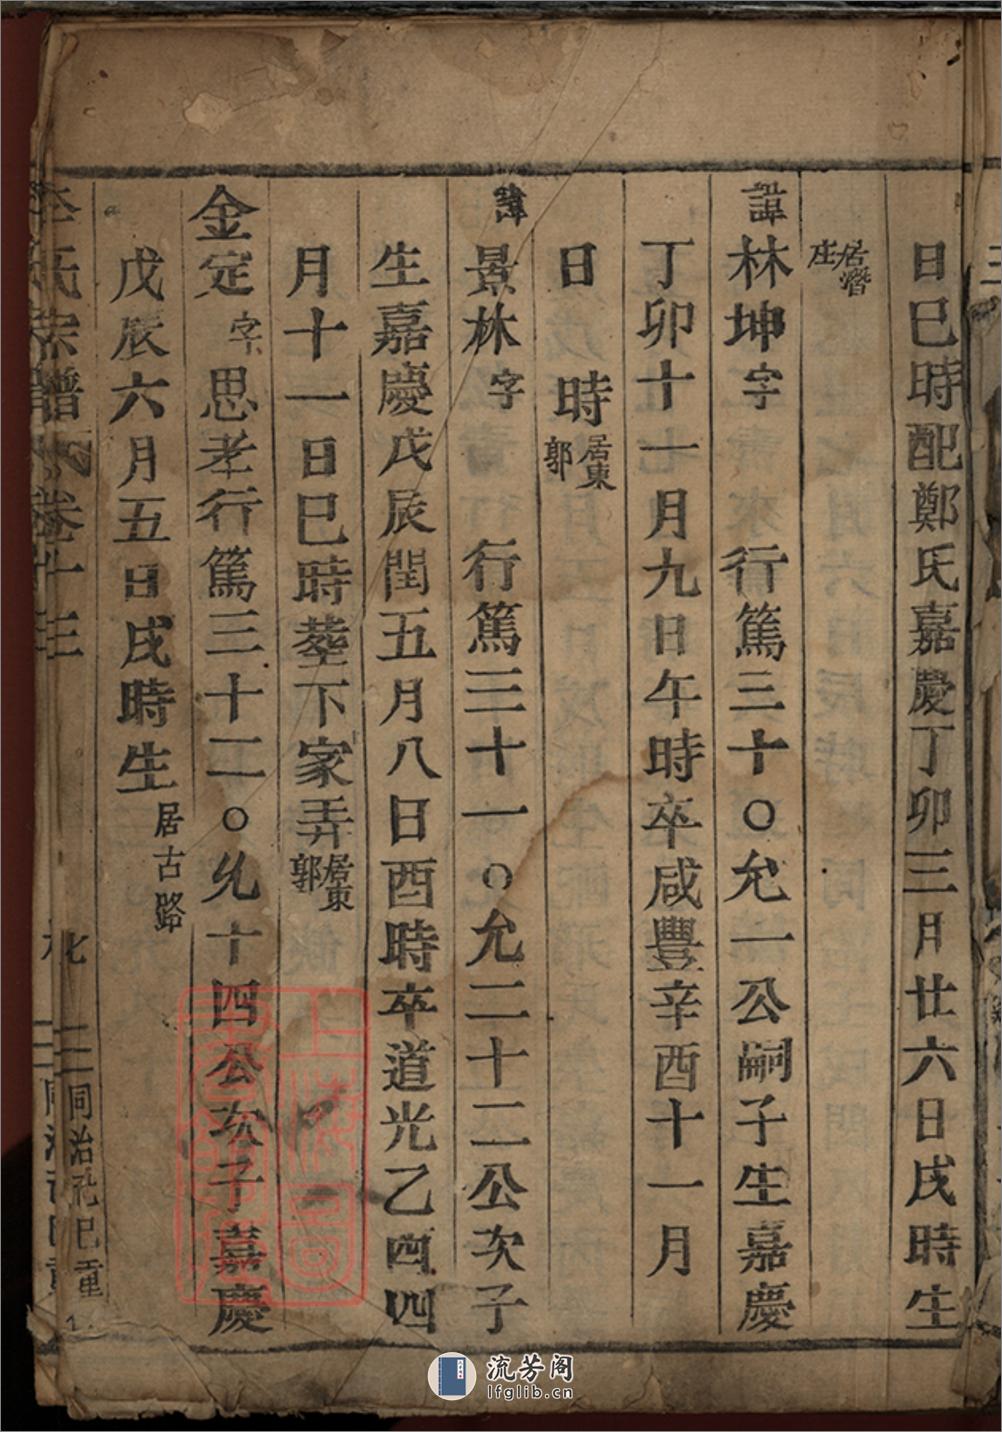 日巳時配鄭氏嘉慶丁卯三月廿六日戌時生
居潛庄
諱林坤字 行篤三十〇允一公嗣子生嘉慶
丁卯十一月九日午時卒咸豐辛酉十一月
日 時居東郭
諱景林字 行篤三十一〇允二十二公次子
生嘉慶戊辰閏五月八日酉時卒道光乙酉四
月十一日巳時葬下家弄居東郭
金定字思孝行篤三十二〇允十四公次子嘉慶
戊辰六月五日戌時生居古路
氏宗譜 卷 三
二 同治 巳重
流芳阁
lfglib.cn